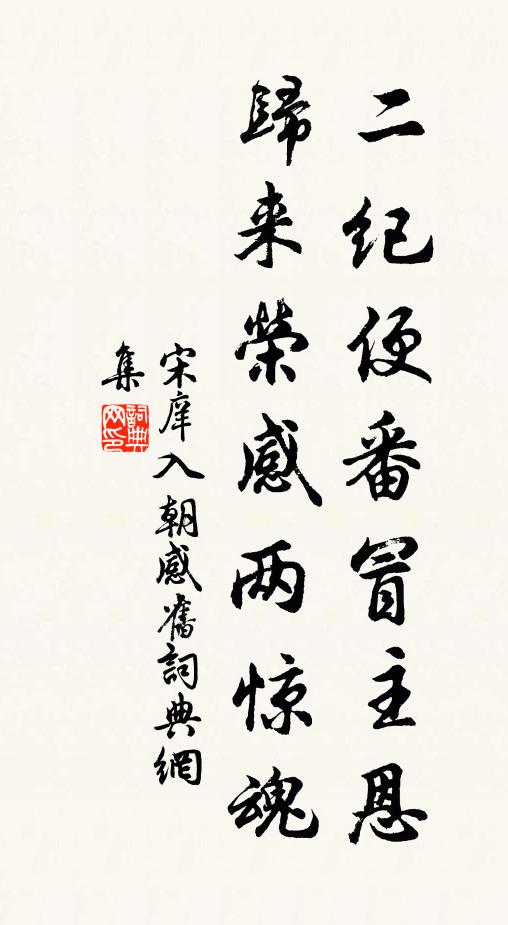 二纪便番冒主恩
歸来榮感两惊魂
宋庠入朝感舊詞典網
集
詞典网印